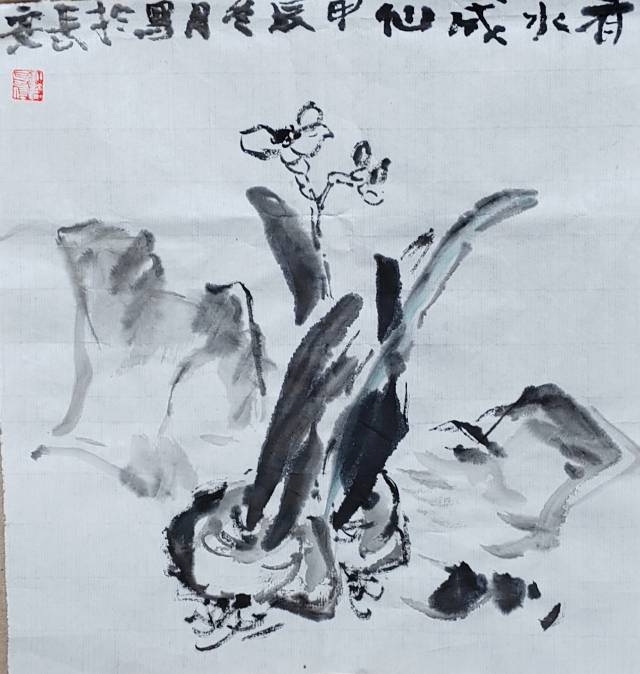 有水成仙甲辰冬月寫於長安